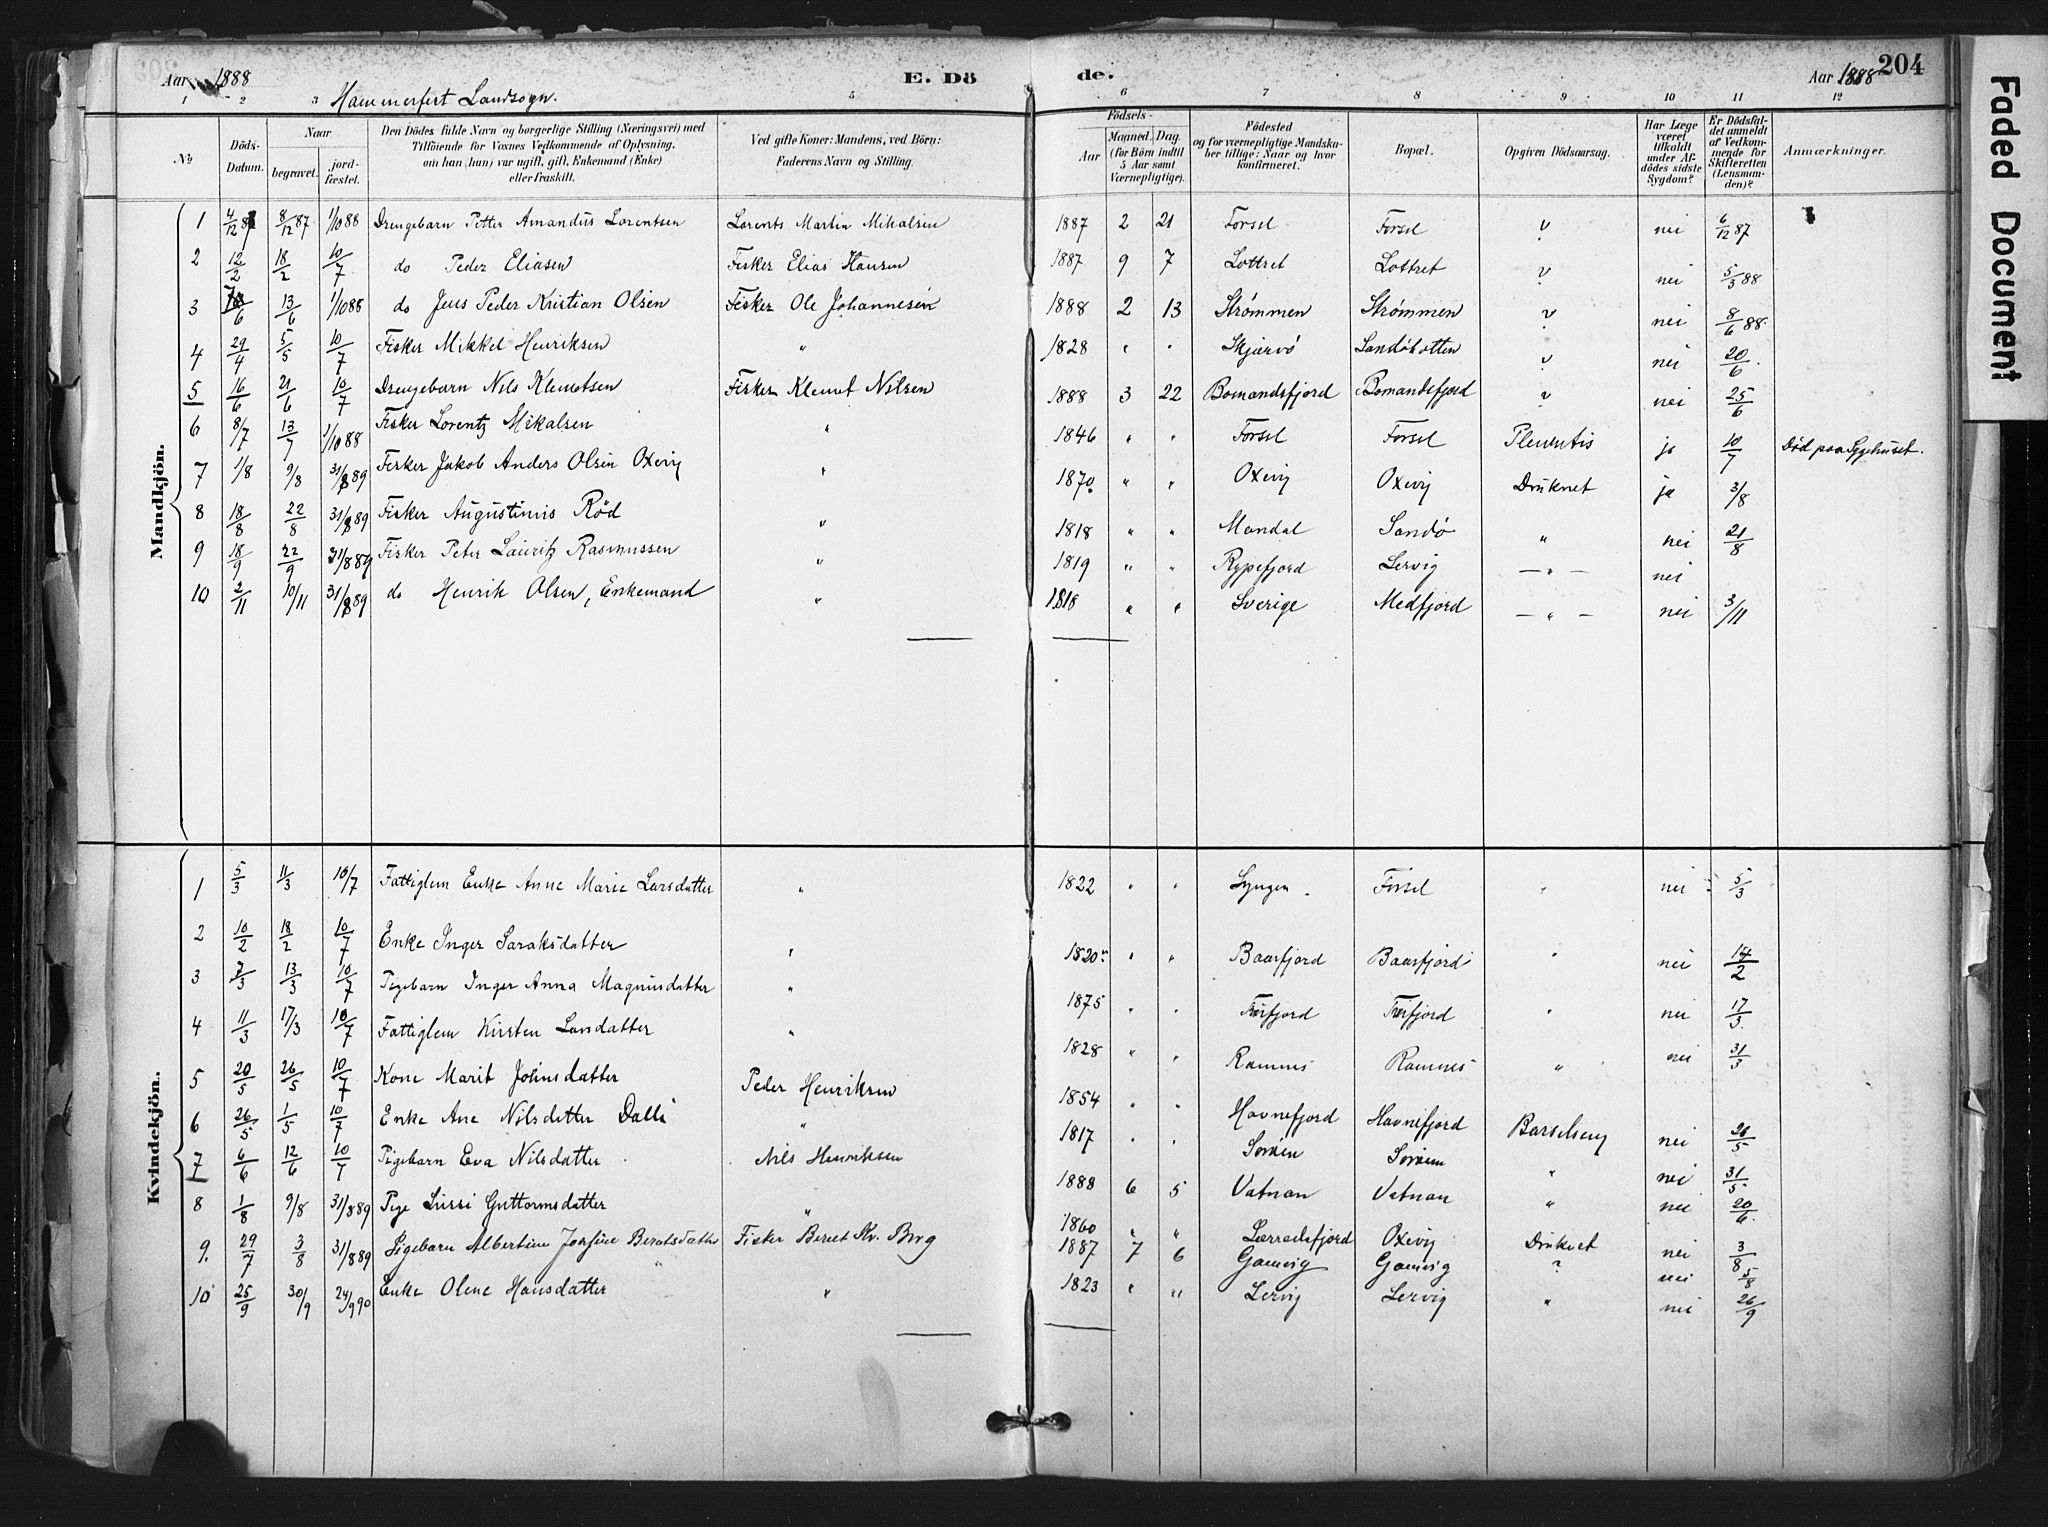 Aar 1888
E. Döde.
Aar 1888
204
Faded Document
Hammerfest Landsogn.
1 2 3 5 6 7 8 9 10 11 12
No
Döds-Datum.
Naar
begravet.
jordfæstet.
Den Dödes fulde Navn og borgerlige Stilling (Næringsvei) med
Tilföiende for Voxnes Vedkommende af Oplysning,
om han (hun) var ugift, gift, Enkemand (Enke)
eller fraskilt.
Ved gifte Koner: Mandens, ved Börn:
Faderens Navn og Stilling.
Födsels-
Aar
Maaned. Dag.
(for Börn indtil
5 Aar samt
Værnepligtige).
Födested
og for værnepligtige Mandska-
ber tillige: Naar og hvor
konfirmeret.
Bopæl.
Opgiven Dödsaarsag.
Har Læge
været
tilkaldt
under Af-
dödes sidste
Sygdom?
Er Dödsfal-
det anmeldt
af Vedkom-
mende for
Skifteretten
(Lensman-
den)?
Anmærkninger.
Mandkjön.
1 4/12 87 8/12 87 1/10 88 Drengebarn Petter Amandus Lorentsen Lorents Martin Mikalsen 1887 2 21 Forsøl Forsøl ? nei 6/12 87
2 12/2 18/2 10/7 do Peder Eliasen Fisker Elias Hansen 1887 9 7 Lottret Lottret ? nei 5/3 88
3 /6 13/6 1/10 88 do Jens Peder Kristian Olsen Fisker Ole Johannesen 1888 2 13 Strømmen Strømmen ? nei 8/6 88.
4 29/4 5/5 10/7 Fisker Mikkel Henriksen " 1828 " " Skjærvø Sandøbotten ? nei 20/6.
5 16/6 21/6 10/7 Drengebarn Nils Klemetsen Fisker Klemet Nilsen 1888 3 22 Bomandsfjord Bomandsfjord ? nei 25/6
6 8/7 13/7 1/10 88 Fisker Lorentz Mikalsen " 1846 " " Forsøl Forsøl Pleuritis ja 10/7 Død paa Sygehuset.
7 1/8 9/8 31/8 89 Fisker Jakob Anders Olsen Oxevig " 1870 " " Oxevig Oxevig Druknet ja 3/8
8 18/8 22/8 31/8 89 Fisker Augustinus Rød " 1818 " " Mandal Sandø " nei 21/8
9 18/9 22/9 31/8 89 Fisker Peter Lauritz Rasmussen " 1819 " " Rypefjord Lervig — " — nei
10 2/11 10/11 31/8 89 do Henrik Olsen, Enkemand " 1818 " " Sverige Medfjord — " — nei 3/11
Kvindekjön.
1 5/3 11/3 10/7 Fattiglem Enke Anne Marie Larsdatter " 1822 " " Lyngen Forsøl " nei 5/3
2 10/2 18/2 10/7 Enke Inger Saraksdatter " 1820 " " Baasfjord Baasfjord " nei 14/2
3 7/3 13/3 10/7 Pigebarn Inger Anna Magnusdatter " 1875 " " " nei 17/3.
4 11/3 17/3 10/7 Fattiglem Kirsten Larsdatter " 1828 " " Ramnes Ramnes " nei 31/3
5 20/5 26/5 10/7 Kone Marit Johnsdatter Peder Henriksen 1854 " " Havnefjord Havnefjord Barselseng nei 21/5
6 26/5 1/5 10/7 Enke Ane Nilsdatter Dalli " 1817 " " Sørøen Sørøen " nei 31/5
7 6/6 12/6 10/7 Pigebarn Eva Nilsdatter Nils Henriksen 1888 6 5 Vatnan Vatnan " nei 20/6.
8 1/8 9/8 31/8 89 Pige Lussi Guttormsdatter " 1860 " " Oxevig Druknet nei 3/8
9. 29/7 3/8 31/8 89 Pigebarn Albertine Josfine Beratsdatter Fisker Berret Kv. Berg 1887 7 6 Gamvig Gamvig ? nei 5/8
10 25/9 30/9 24/9 90 Enke Olene Hansdatter " 1823 " " Lervig Lervig " nei 26/9